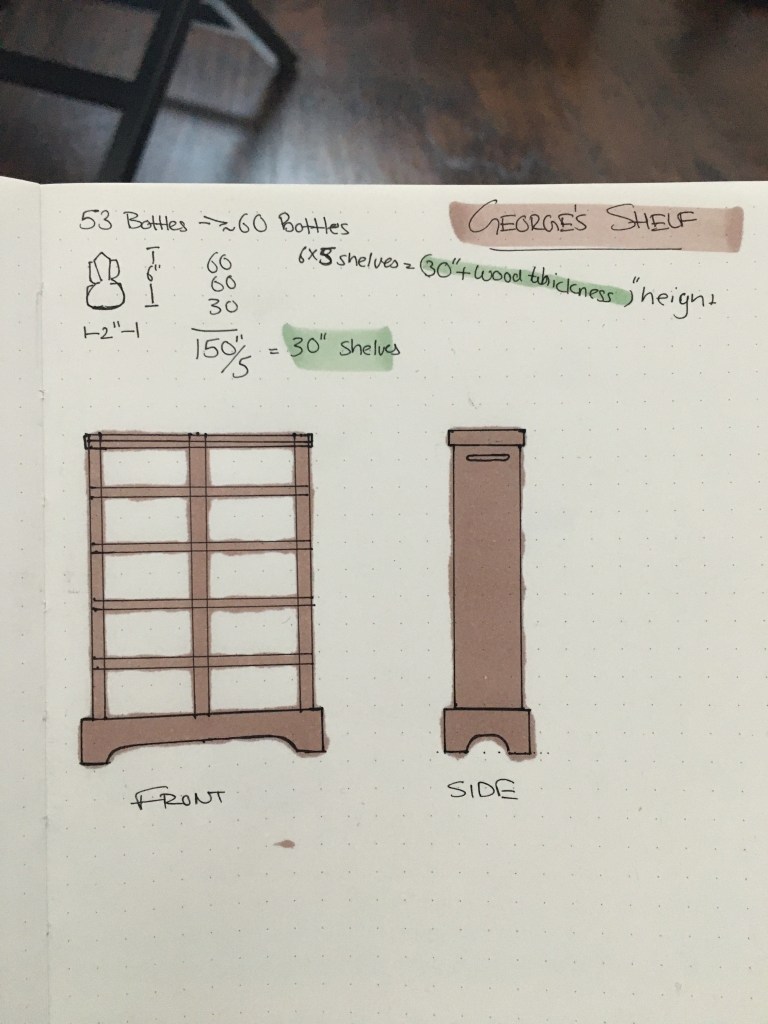 GEORGE'S SHELF
53 Bottles → ≈60 Bottles
6"
1-2"-1
60
60
30
150"/5 = 30" shelves
6x5 shelves = (30" + wood thickness)" height
FRONT
SIDE